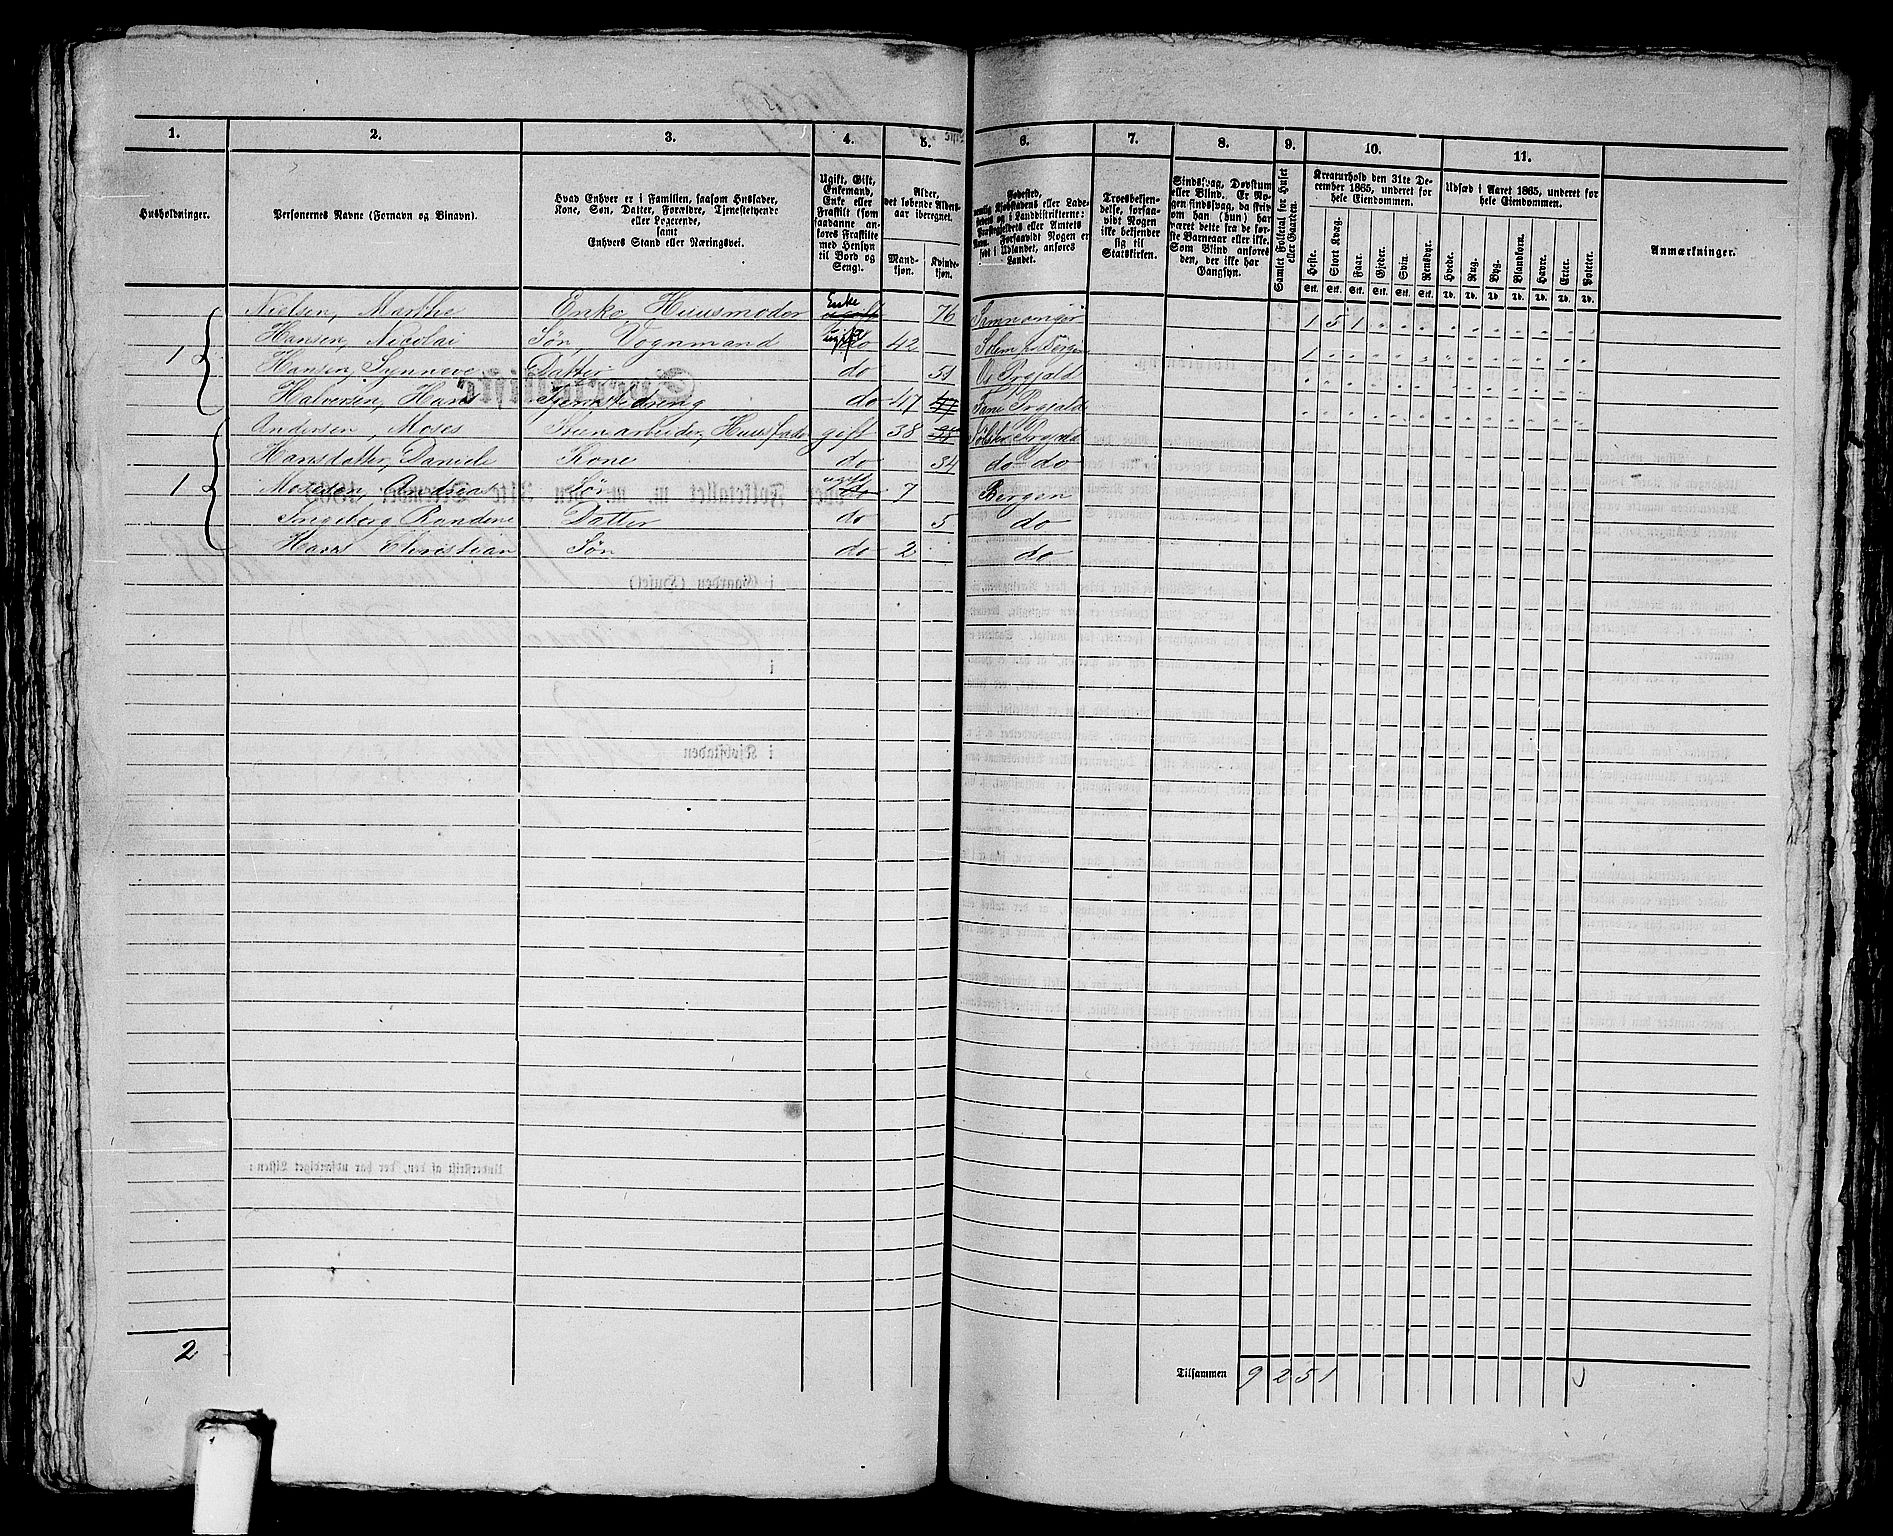 1. 2. 3. 4. 5. 6. 7. 8. 9. 10. 11.
Husholdninger.
Personernes Navne (Fornavn og Binavn).
Hvad Enhver er i Familien, saasom Husfader,
Kone, Søn, Datter, Forældre, Tjenestetyende
eller Logerende,
samt
Enhvers Stand eller Næringsvei.
Ugift, Gift,
Enkemand,
Enke eller
Fraskilt (som
saadanne an-
føres Fraskilte
med Hensyn
til Bord og
Seng).
Alder,
det løbende Alders-
aar iberegnet.
Mand-
kjøn.
Kvinde-
kjøn.
Fødested,
Landet.
Troesbekjen-
delse, forsaa-
vidt Nogen
ikke bekjender
sig til
Statskirken.
Sindssvag, Døvstum
eller Blind. Er No-
gen sindssvag, da skriv
om han (hun) har
været dette fra de før-
ste Barneaar eller ikke.
Som Blind ansøres
den, der ikke har
Gangsyn.
Samlet Folketal for Huset
eller Gaarden.
Kreaturhold den 31te De-
cember 1865, underet for
hele Eiendommen.
Heste. Stort Kvæg. Faar. Gjeder. Svin. Rensdyr.
Stk. Stk. Stk. Stk. Stk. Stk.
Udsæd i Aaret 1865, underet for
hele Eiendommen.
Hvede. Rug. Byg. Blandkorn. Havre. Erter. Poteter.
Td. Td. Td. Td. Td. Td. Td.
Anmærkninger.
Nielsen, Marthe Enke, Huusmoder Enke 76 Samnanger 1 5 1 " " " " " " " " " "
Hansen, Nicolai Søn, Vognmand ugift do 42 Solem Bergen 1 " " " " " " " " " " " "
1 Hansen, Synneve Datter do 51 Os Prgjæld " " " " " " " " " " " " "
Halversen, Hans Tjenestedreng do 47 47 Fane Prgjæld " " " " " " " " " " " " "
Andersen, Moses Huusfader gift 38 38 Prgjæld
Hansdatter, Daniele Kone do 34 do do
1 Mosesen, Andreas Søn ugift do 7 Bergen
Ingeberg Randene Datter do 5 do
Hans Christian Søn do 2 do
2
Tilsammen 9 2 5 1